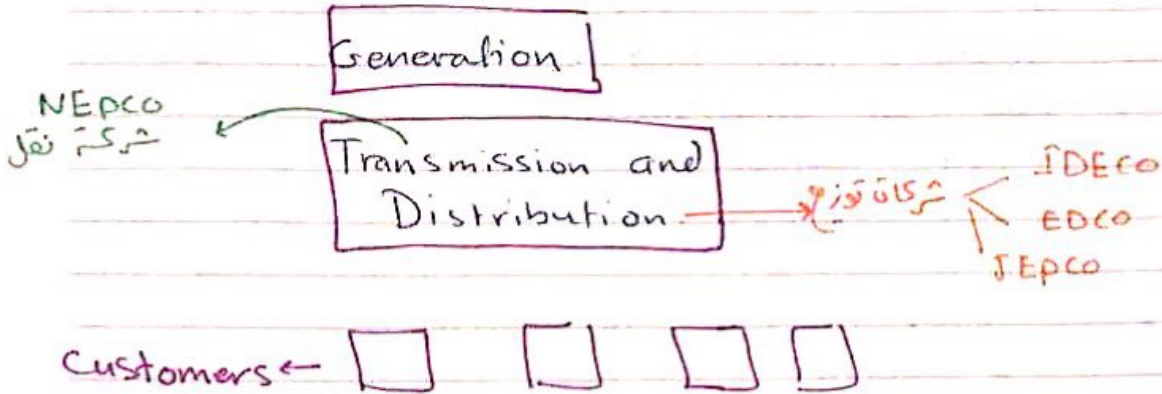 Generation
NEPCO
شركة نقل
Transmission and
Distribution
شركات توزيع
IDECO
EDCO
JEPCO
Customers